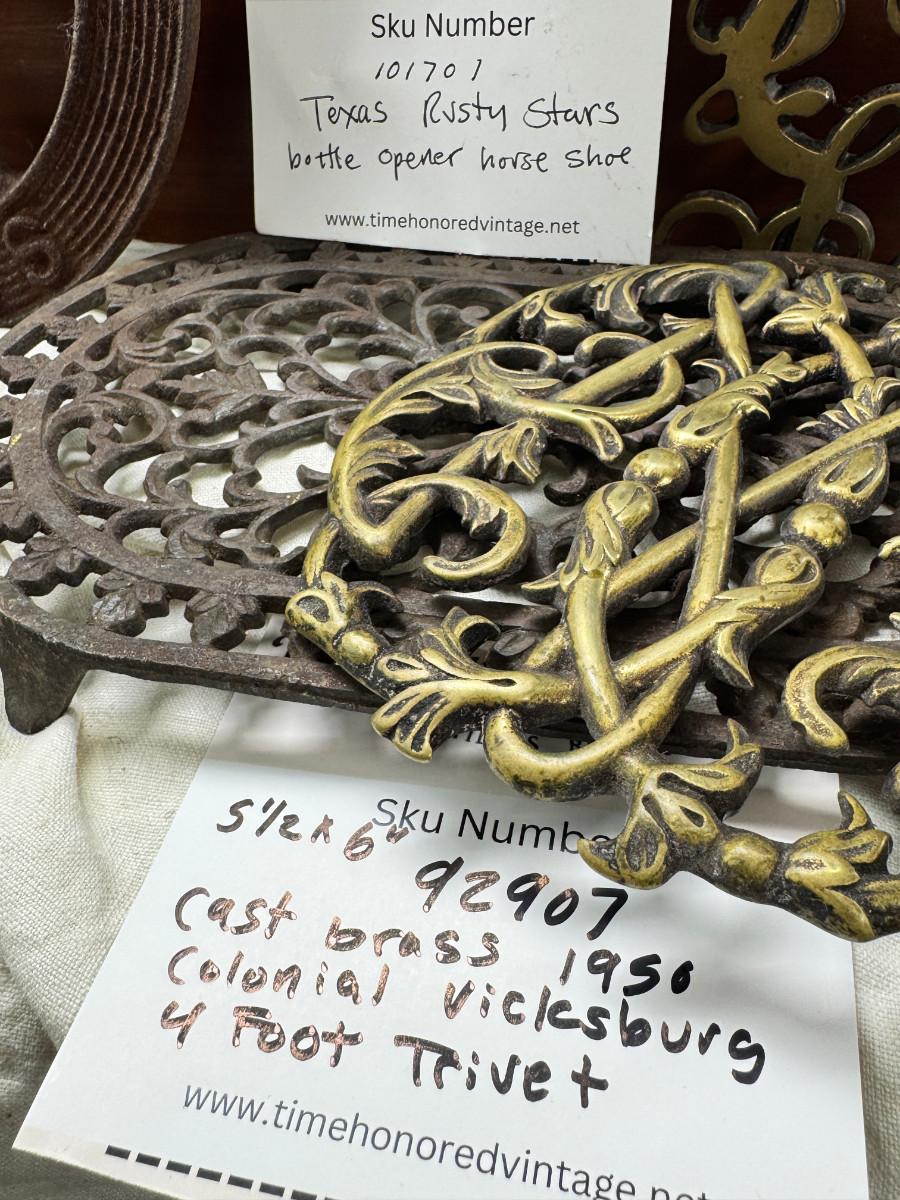 Sku Number
101701
Texas Rusty Stars
bottle opener horse shoe
www.timehonoredvintage.net
5 1/2 x 6"
Sku Numbe
92907
Cast brass 1950
Colonial Vicksburg
4 Foot Trivet
www.timehonoredvintage.net